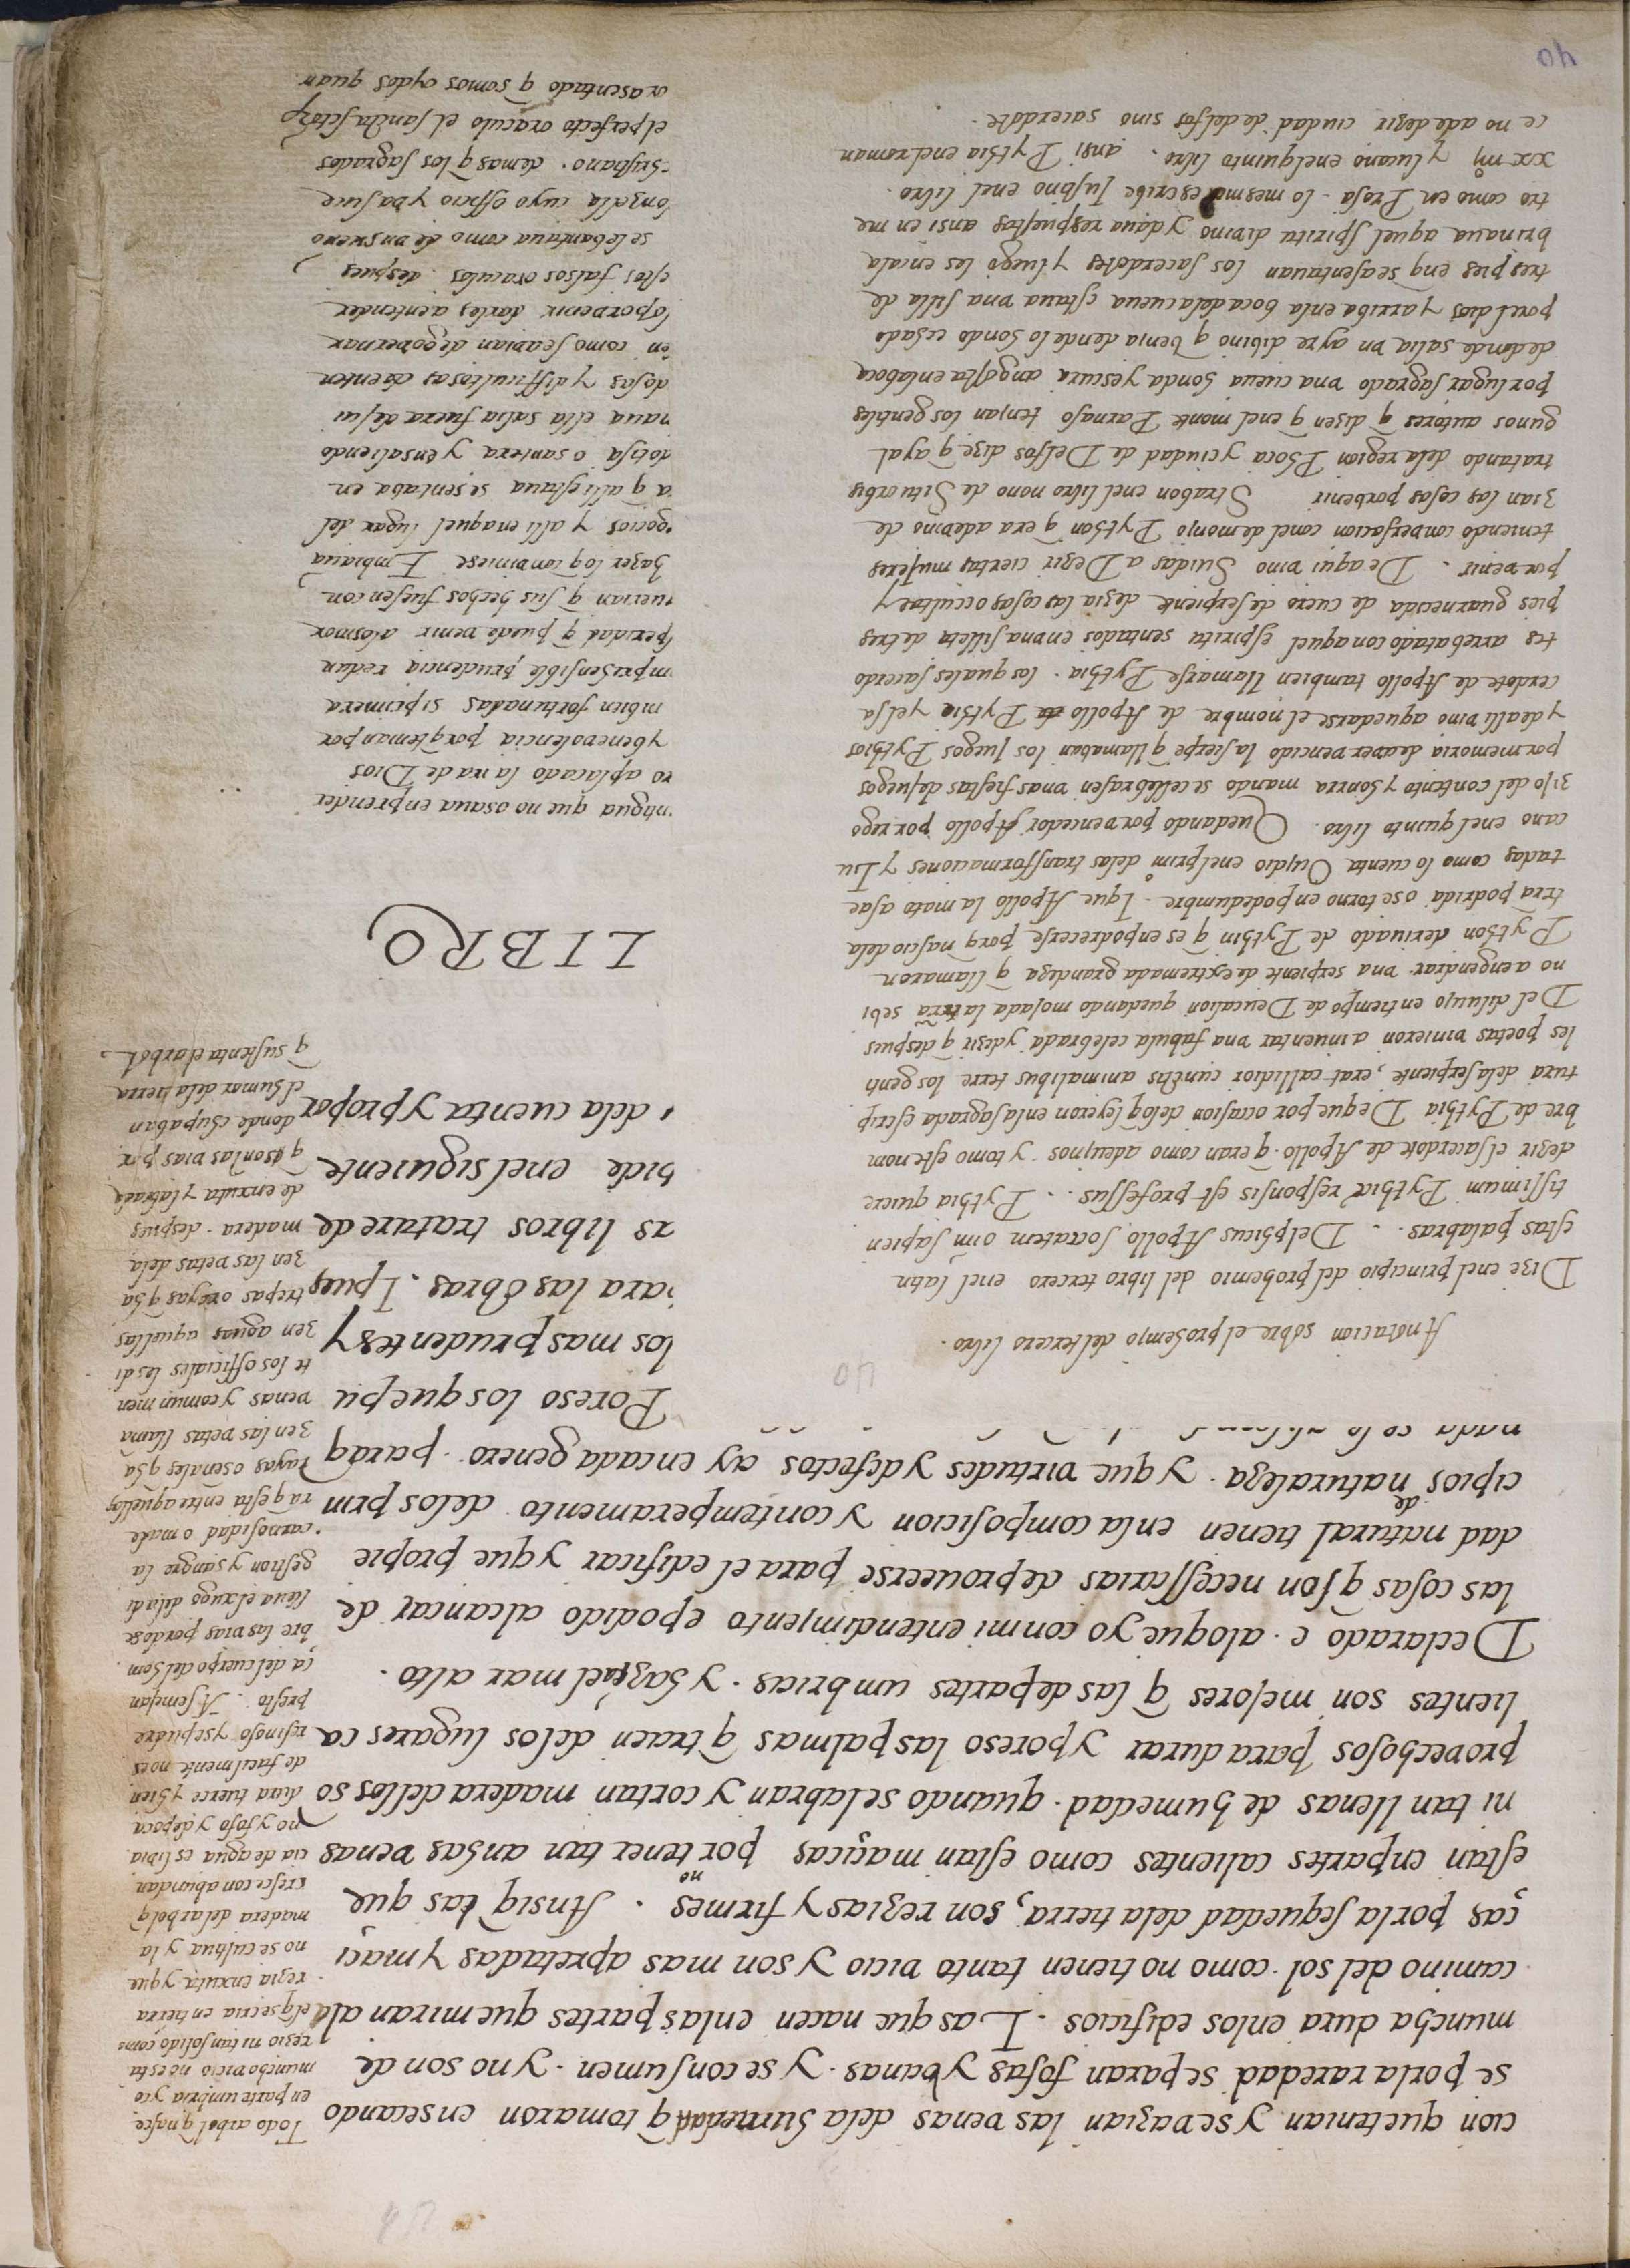 cion quetenian y sevazian las venas dela humedad q̃ tomaron ensecando
se porla raredad se paran fofas y vanas. y se consumen. y no son de
muncha dura enlos edificios. Las que nacen enlas partes que miran al
camino del sol. como no tienen tanto vicio y son mas apretadas y maçi
ças por la sequedad dela tierra, son rezias y firmes. Ansiq̃ las que
estan enpartes calientes como estan maçicas por no tener tan anchas venas
ni tan llenas de humedad. quando se labran y cortan madera dellos so
provechosos para durar y poreso las palmas q̃ traen delos lugares ca
lientes son mejores q̃ las departes umbrias. y hazia el mar alto.
Declarado e. aloque yo con mi entendimiento e podido alcançar de
las cosas q̃ son necessarias deproveerse para el edificar y que propie
dad natural tienen enla composicion y contemperamento delos prin
cipios de naturaleza. y que virtudes y defectos ay encada genero. paraq̃
Todo arbol q̃ nasce
en parte umbria y co
muncho vicio no esta
rezio ni tan solido como
el q̃ se cria en tierra
rezia enxuta y que
no se cultiva y la
madera del arbol q̃
cresce con abundan
cia de agua es liviana
y no y fofo y depoca
dura tuerce y hien
de facilmente no es
resinoso y se pudre
presto. Asemejan
ça del cuerpo del hom
bre las vias por dóde
lleva el xugo dela di
gestion y sangre la
carnosidad o made
ra q̃ esta entre aq̃llos
rayas o señales q̃ ha
zen las vetas llama
venas y comunmen
te los officiales les di
zen aguas aquellas
trepas o rayas q̃ ha
zen las vetas dela
madera. despues
de enxuta y labrada
q̃ son las vias por
donde chupaban
el humor dela tierra
q̃ sustenta el arbol.
Anotacion sobre el prohemio del tercero libro.
Dize enel principio del prohemio del libro tercero enel latin
estas palabras. Delphicus Apollo Socratem oim̃ sapien
tissimum Pythiæ responsis est professus. Pythia quiere
dezir el sacerdote de Apollo. q̃ eran como adevinos y tomo este nom
bre de Pythia De que por occasion delo q̃ leyeron enla sagrada escrip
tura dela serpiente, erat callidior cunctis animalibus terre los genti
les poetas vinieron a inventar una fabula celebrada y dezir q̃ despues
Del diluvio entiempo de Deucalion quedando mojada la tierra se bi
no a engendrar. una serpiente de extremada grandeza q̃ llamaron
Python derivado de Pythin q̃ es enpodrecerse porq̃ nascio dela
trr̃a podrida o se torno en podedumbre. I que Apollo la mato a sae
tadas como lo cuenta Ovidio enel prim̊ delas transformaciones y Lu
cano enel quinto libro. Quedando por vencedor Apollo por rego
zijo del contento y honrra mando se cellebrasen unas fiestas de juegos
por memoria de aver vencido la sierpe q̃ llamaban los Juegos Pythios
y de alli vino a quedarse el nombre de Apollo Pythio y el sa
cerdote de Apollo tambien llamarse Pythia. los quales sacerdo
tes arrebatado con aquel espiritu sentados en una silleta de tres
pies guarnecida de cuero de serpiente dezia las cosas occultas y
por venir. De aqui vino Suidas a Dezir ciertas mujeres
teniendo conversacion conel demonio Python q̃ era adevino de
zian las cosas porbenir Strabon enel libro nono de Situ orbis
tratando dela region Phoca y ciudad de Delfos dize q̃ ay al
gunos autores q̃ dizen q̃ enel monte Parnaso tenjan los gentiles
por lugar sagrado una cueva honda y escura angosta enla boca
dedonde salia un ayre dibino q̃ benia dende lo hondo echado
porel dios y arriba enla boca dela cueva estava una silla de
tres pies enq̃ se asentavan los sacerdotes y luego les enčala
brinava aquel spiritu divino y dava respuestas ansi en me
tro como en Prosa. lo mesmo escribe Justino enel libro.
xx iiij y lucano enel quinto libro. ansi Pythia enel roman
ce no a de dezir ciudad de delfos sino sacerdote.
40
Poreso los que pu
los mas prudentes y
para las obras. I pues
as libros tratare de
bide enel siguiente
dela cuenta y propor
LIBRO
ntigua que no osava enprender
ro aplacado la ira de Dios
y benevolencia porq̃ teman por
mbien fortunadas si primera
mprehensible prudencia redun
speridad q̃ puede venir alos mor
uerian q̃ sus hechos fuesen con
hazer lo q̃ conviniese Embiava
gocios y alli enaquel lugar del
a q̃ alli estava se sentaba en
dotisa o santera y ensaliendo
nava ella salia fuera desui
dosas y difficultosas de enten
en como seabian de gobernar
lo porvenir darles a entender
estos falsos oraculos. despues
se lebantava como de un sueño
onzella cuyo officio y da suce
Christiano. demas q̃ los sagrados
el perfecto oraculo el sancta sctor̃
a asentado q̃ somos oydos quan